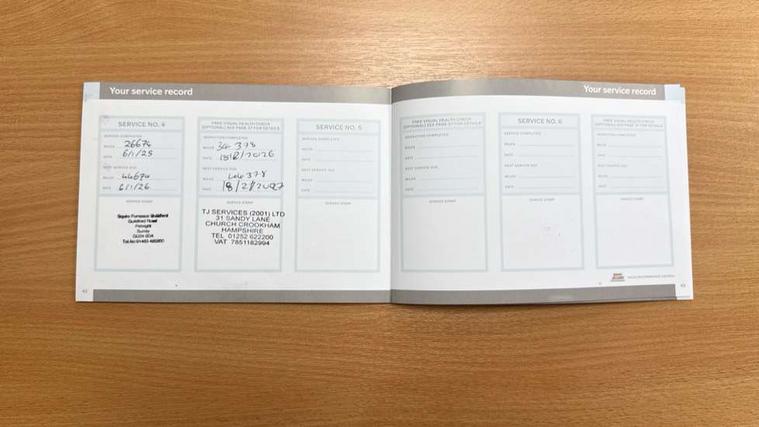 Your service record
SERVICE NO. 4
SERVICE COMPLETED
MILES 26674
DATE 6/1/25
NEXT SERVICE DUE
MILES 44674
DATE 6/1/26
SERVICE STAMP
Guildford Road
Surrey
FREE VISUAL HEALTH CHECK
(OPTIONAL) SEE PAGE 37 FOR DETAILS
INSPECTION COMPLETED
MILES 34 378
DATE
NEXT SERVICE DUE
MILES 44 378
DATE 18/2/2027
SERVICE STAMP
TJ SERVICES (2001) LTD
31 SANDY LANE
CHURCH CROOKHAM
HAMPSHIRE
TEL 01252 622200
VAT 7851182994
SERVICE NO. 5
SERVICE COMPLETED
MILES
DATE
NEXT SERVICE DUE
MILES
DATE
SERVICE STAMP
42
Your service record
FREE VISUAL HEALTH CHECK
(OPTIONAL) SEE PAGE 37 FOR DETAILS
INSPECTION COMPLETED
MILES
DATE
NEXT SERVICE DUE
MILES
DATE
SERVICE STAMP
SERVICE NO. 6
SERVICE COMPLETED
MILES
DATE
NEXT SERVICE DUE
MILES
DATE
SERVICE STAMP
FREE VISUAL HEALTH CHECK
(OPTIONAL) SEE PAGE 37 FOR DETAILS
INSPECTION COMPLETED
MILES
DATE
NEXT SERVICE DUE
MILES
DATE
SERVICE STAMP
43